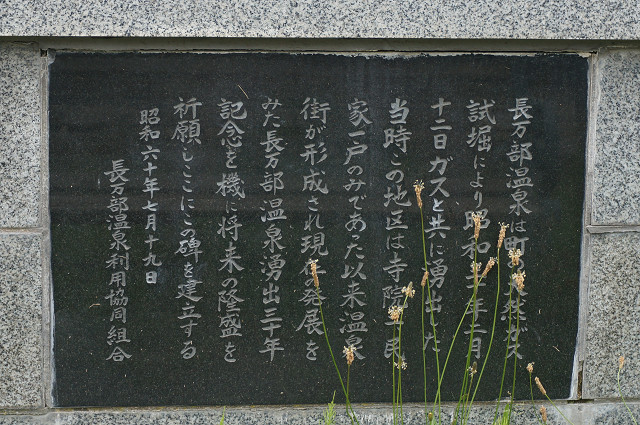 長万部温泉は町の天然ガス
試堀により昭和三十年十一月
十二日ガスと共に湧出した
当時この地区は寺院一民
家一戸のみであった以来温泉
街が形成され現在の発展を
みた長万部温泉湧出三十年
記念を機に将来の隆盛を
祈願しここにこの碑を建立する
昭和六十年七月十九日
長万部温泉利用協同組合